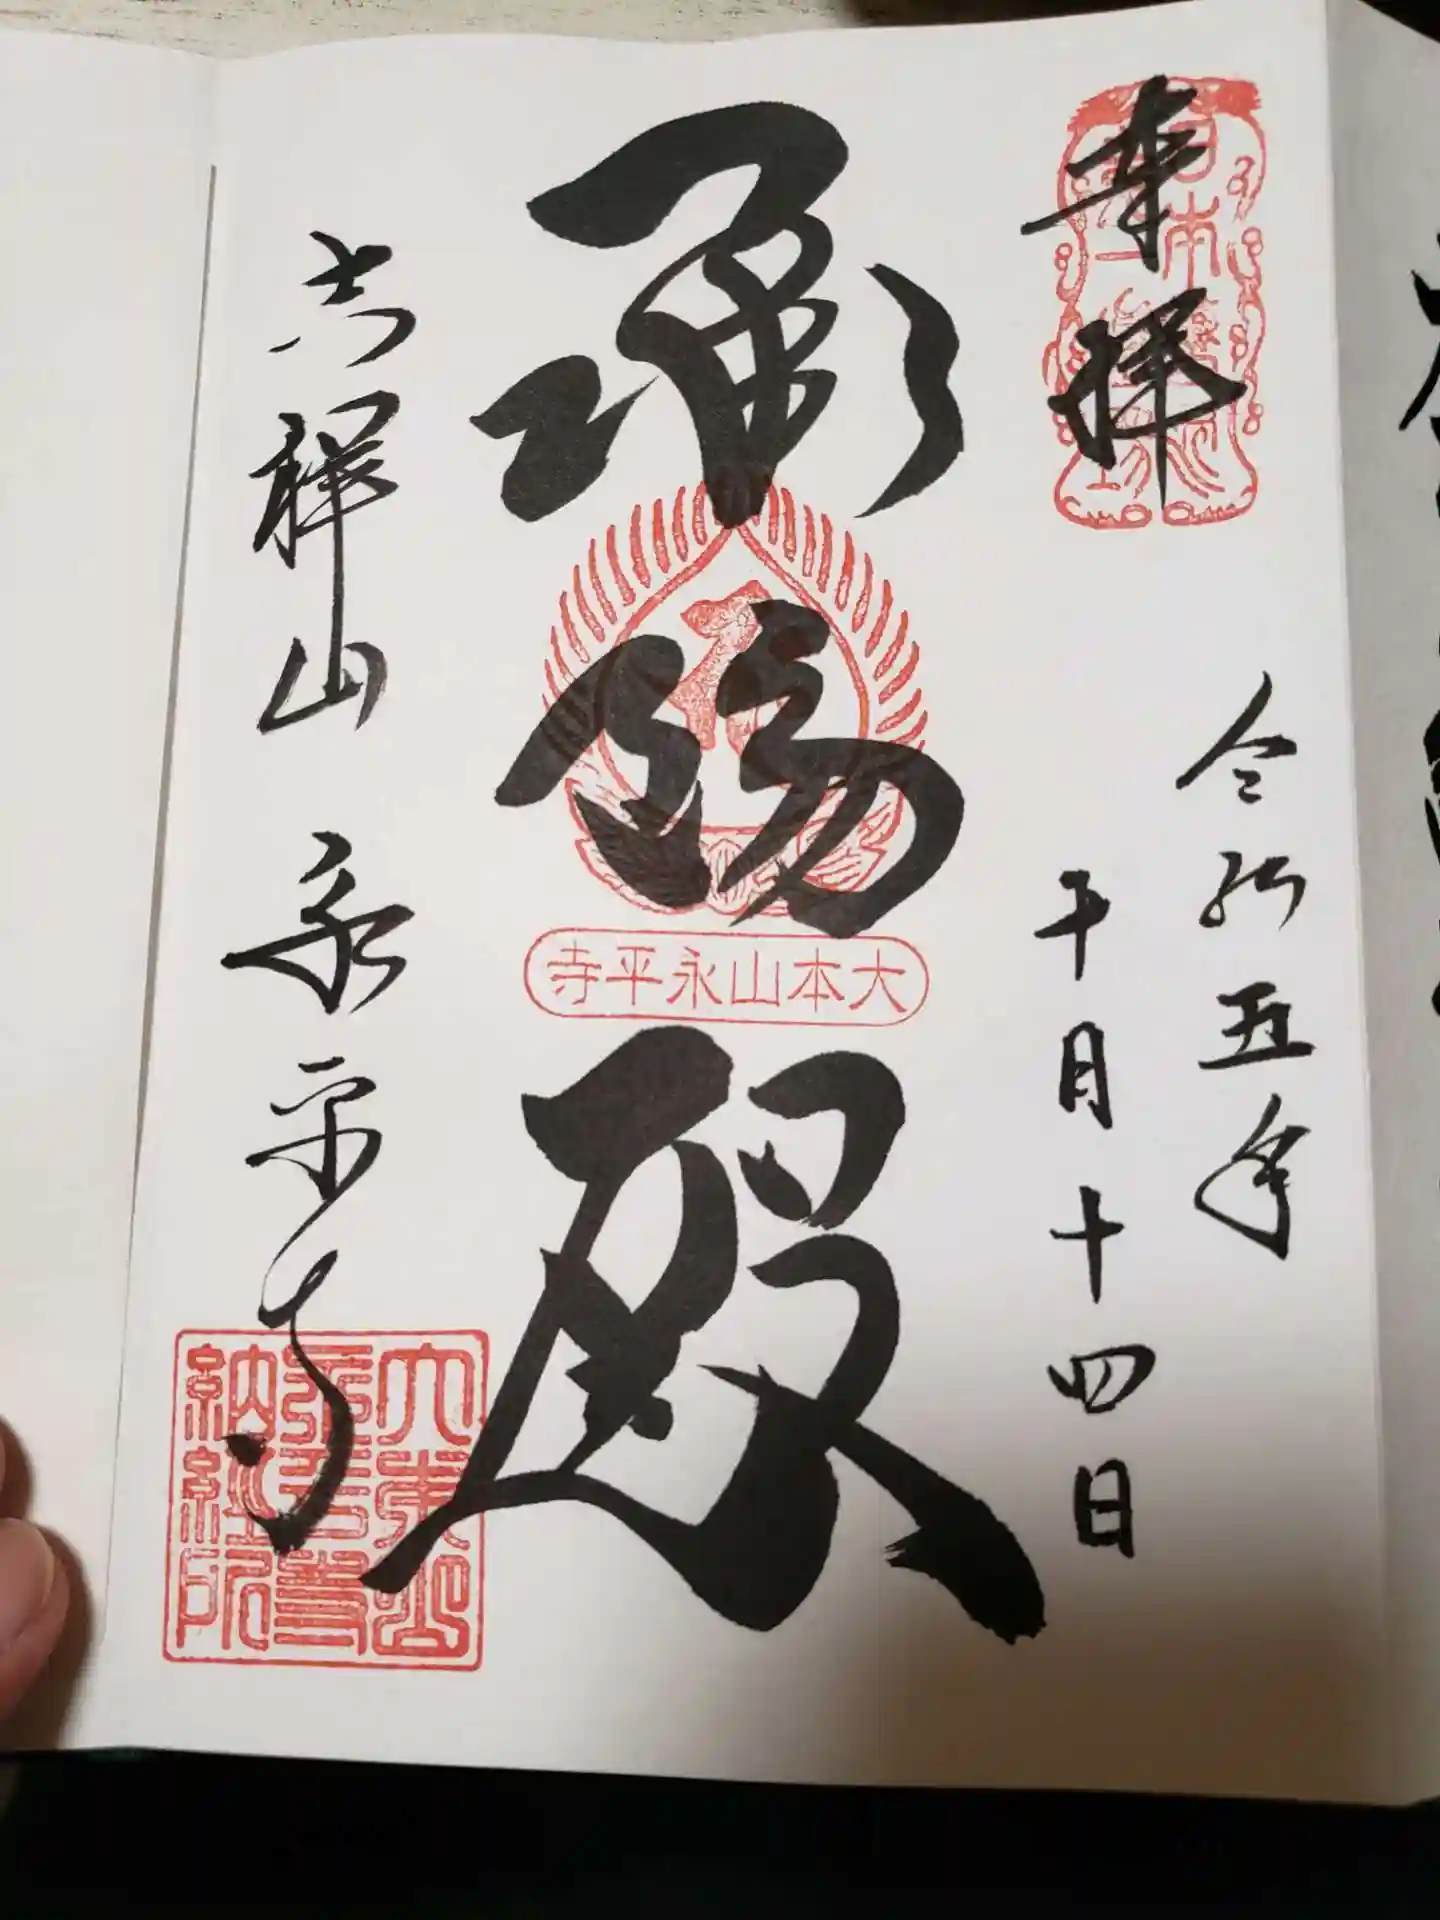 奉拝
令和五年
十月十四日
承陽殿
大本山永平寺
吉祥山 永平寺
大本山
永平寺書
納経所